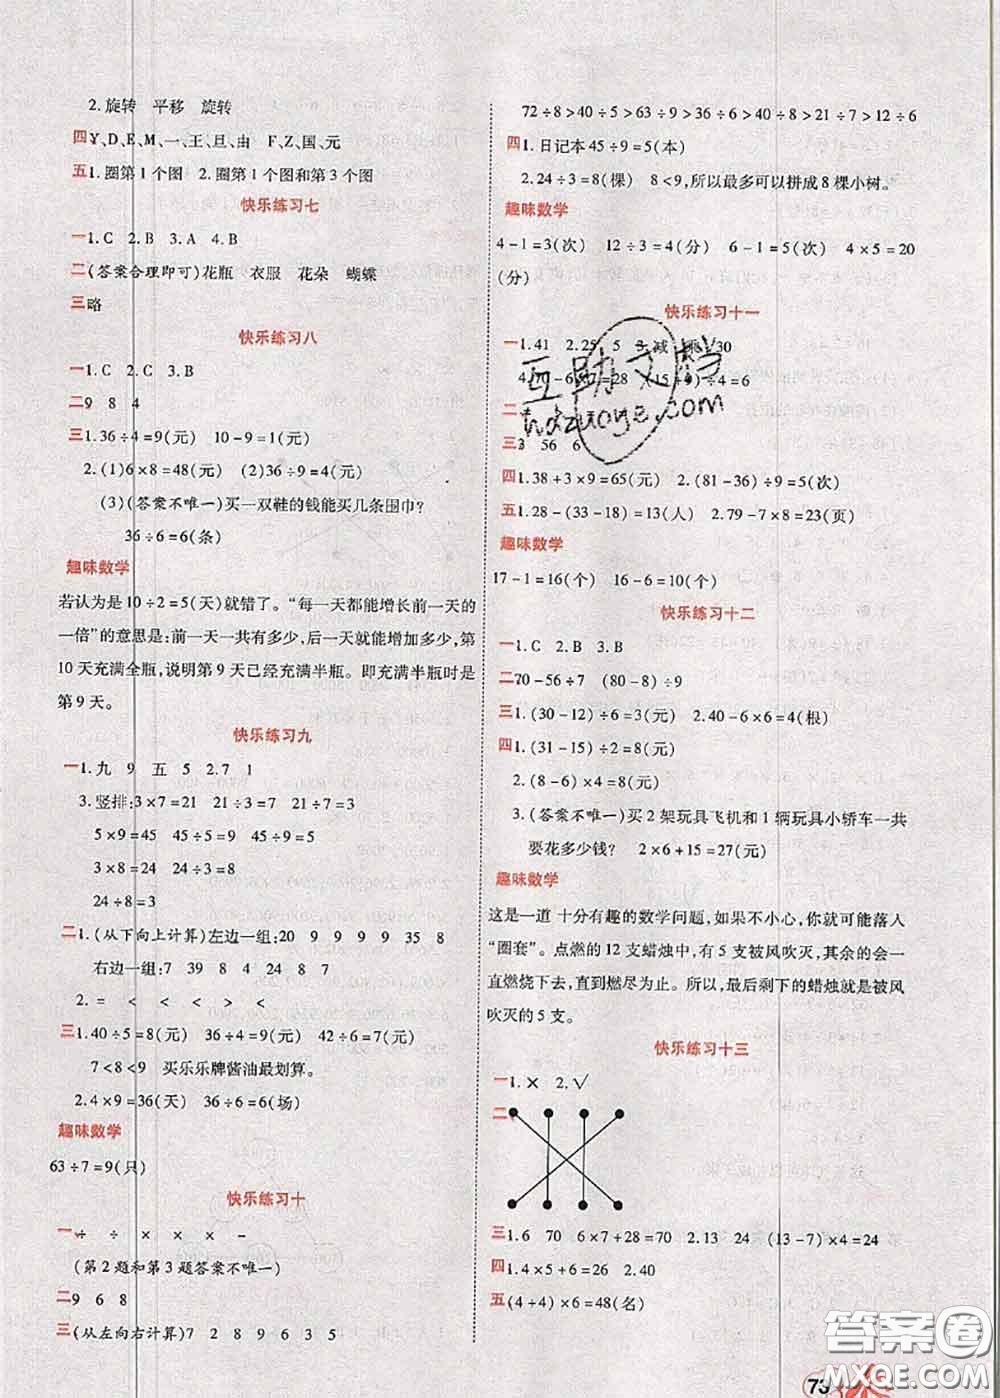 2.旋转 平移 旋转
四Y、D、E、M、一、王、旦、由 F、Z、国、元
五1.圈第1个图 2.圈第1个图和第3个图
快乐练习七
一1.C 2.B 3.A 4.B
二(答案合理即可)花瓶 衣服 花朵 蝴蝶
三略
快乐练习八
一1.C 2.C 3.B
二9 8 4
三1.36÷4=9(元) 10-9=1(元)
2.(1)6×8=48(元) (2)36÷9=4(元)
(3)(答案不唯一)买一双鞋的钱能买几条围巾?
36÷6=6(条)
趣味数学
若认为是10÷2=5(天)就错了。“每一天都能增长前一天的
一倍”的意思是:前一天一共有多少,后一天就能增加多少,第
10天充满全瓶,说明第9天已经充满半瓶。即充满半瓶时是
第9天。
快乐练习九
一1.九 9 五 5 2.7 1
3.竖排:3×7=21 21÷3=7 21÷7=3
5×9=45 45÷5=9 45÷9=5
3×8=24 24÷3=8
24÷8=3
二1.(从下向上计算)左边一组:20 9 9 9 9 35 8
右边一组:7 39 8 4 24 8 7
2.= < < < > <
三1.40÷5=8(元) 36÷4=9(元) 42÷6=7(元)
7<8<9 买乐乐牌酱油最划算。
2.4×9=36(天) 36÷6=6(场)
趣味数学
63÷7=9(只)
快乐练习十
一÷ ÷ × × × -
(第2题和第3题答案不唯一)
二9 6 8
三(从左向右计算)7 2 8 9 6 3 5
72÷8>40÷5>63÷9>36÷6>40÷8>21÷7>12÷6
四1.日记本45÷9=5(本)
2.24÷3=8(棵) 8<9,所以最多可以拼成8棵小树。
趣味数学
4-1=3(次) 12÷3=4(分) 6-1=5(次) 4×5=20
(分)
快乐练习十一
一1.41 2.25 5 3.减 乘 30
=28 ÷4=6
互助文档
hdzuoye.com
二
三3 56 6
四1.38+3×9=65(元) 2.(81-36)÷9=5(次)
五1.28-(33-18)=13(人) 2.79-7×8=23(页)
趣味数学
17-1=16(个) 16-6=10(个)
快乐练习十二
一1.C 2.B 3.B
二70-56÷7 (80-8)÷9
三1.(30-12)÷6=3(元) 2.40-6×6=4(根)
四1.(31-15)÷2=8(元)
2.(8-6)×4=8(元)
3.(答案不唯一)买2架玩具飞机和1辆玩具小轿车一共
要花多少钱? 2×6+15=27(元)
趣味数学
这是一道 十分有趣的数学问题,如果不小心,你就可能落入
“圈套”。点燃的12支蜡烛中,有5支被风吹灭,其余的会一
直燃烧下去,直到燃尽为止。所以,最后剩下的蜡烛就是被风
吹灭的5支。
快乐练习十三
一1.× 2.√
二
三1.6 70 6×7+28=70 2.13 24 (13-7)×4=24
四1.4×5+6=26 2.40
五(4+4)×6=48(名)
73
答案圈
MXQE.COM